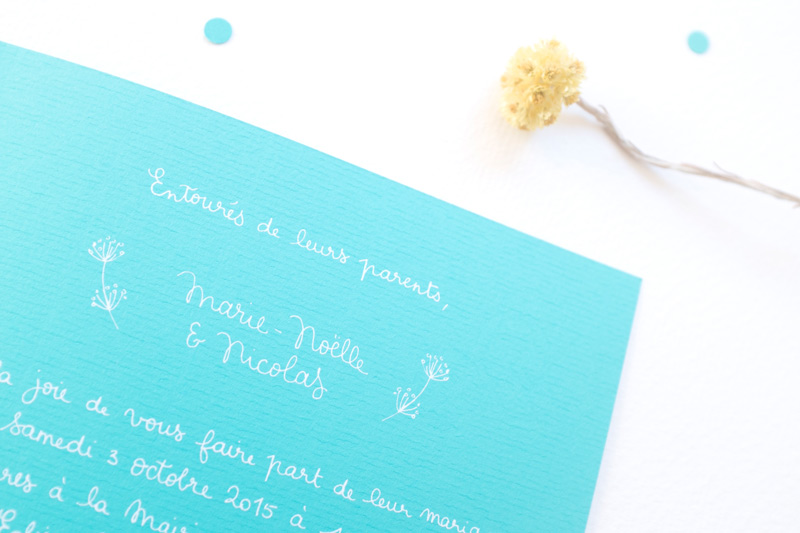 Entourés de leurs parents,
Marie-Noëlle
& Nicolas
la joie de vous faire part de leur maria
samedi 3 octobre 2015 à
res à la Mairi